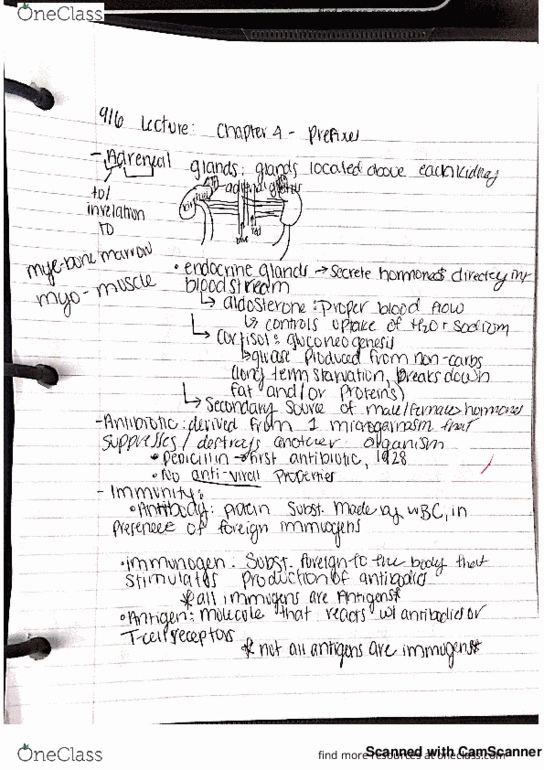 OneClass
9/6 Lecture: Chapter 4 - Prefixes
- Adrenal glands: glands located above each kidney
to/
in relation
to
mye-bone marrow
myo-muscle
• endocrine glands → secrete hormones directly in
bloodstream
↳ aldosterone: proper blood flow
↳ controls uptake of H2O + sodium
↳ Cortisol: gluconeogenesis
↳ glucose produced from non-carbs
(long term starvation, breaks down
fat and/or proteins)
↳ Secondary source of male/female hormones
- Antibiotic: derived from 1 microganism that
suppresses/destroys another organism
• Penicillin → first antibiotic, 1928
• No anti-viral properties
- Immunity:
• Antibody: protein subst. made by WBC, in
presence of foreign immugens
• immunogen: Subst. foreign to the body that
stimulates production of antibodies
*all immugens are Antigens*
• Antigen: molecule that reacts w/ antibodies or
T-cell receptors
* not all antigens are immugens*
OneClass
find more resources at oneclass.com
Scanned with CamScanner